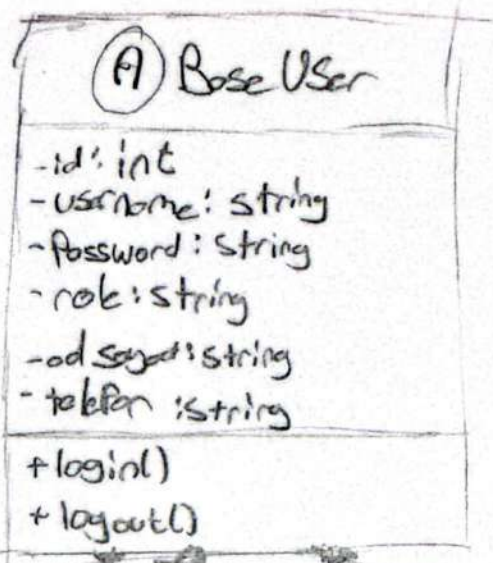 A BaseUser
-id: int
-username: string
-Password: string
-role: string
-ad soyad: string
-telefon :string
+login()
+logout()